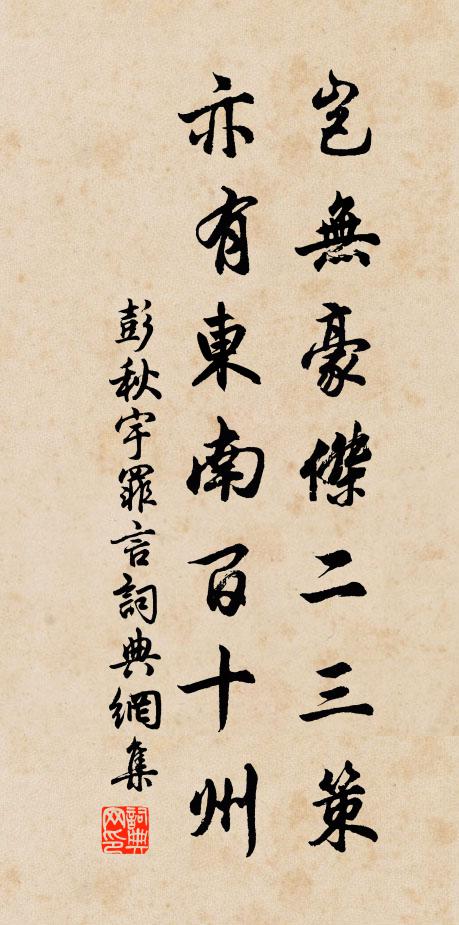 豈無豪傑二三策
亦有東南百十州
彭秋宇罪言詞典網集
詞典网印